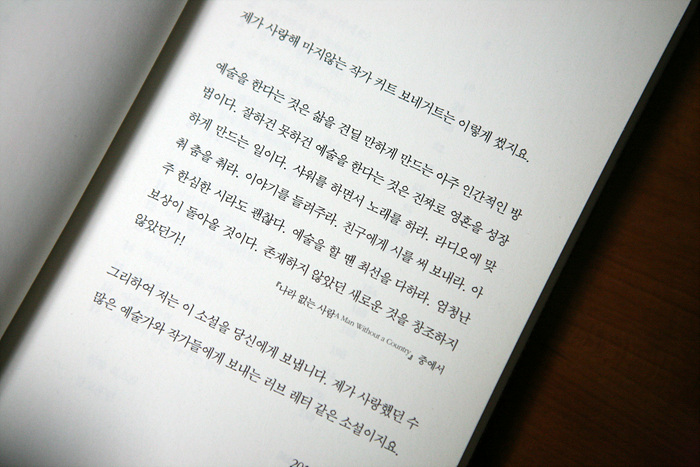 제가 사랑해 마지않는 작가 커트 보네거트는 이렇게 썼지요.
예술을 한다는 것은 삶을 견딜 만하게 만드는 아주 인간적인 방
법이다. 잘하건 못하건 예술을 한다는 것은 진짜로 영혼을 성장
하게 만드는 일이다. 샤워를 하면서 노래를 하라. 라디오에 맞
춰 춤을 춰라. 이야기를 들려주라. 친구에게 시를 써 보내라. 아
주 한심한 시라도 괜찮다. 예술을 할 땐 최선을 다하라. 엄청난
보상이 돌아올 것이다. 존재하지 않았던 새로운 것을 창조하지
않았던가!
『나라 없는 사람A Man Without a Country』 중에서
그리하여 저는 이 소설을 당신에게 보냅니다. 제가 사랑했던 수
많은 예술가와 작가들에게 보내는 러브 레터 같은 소설이지요.